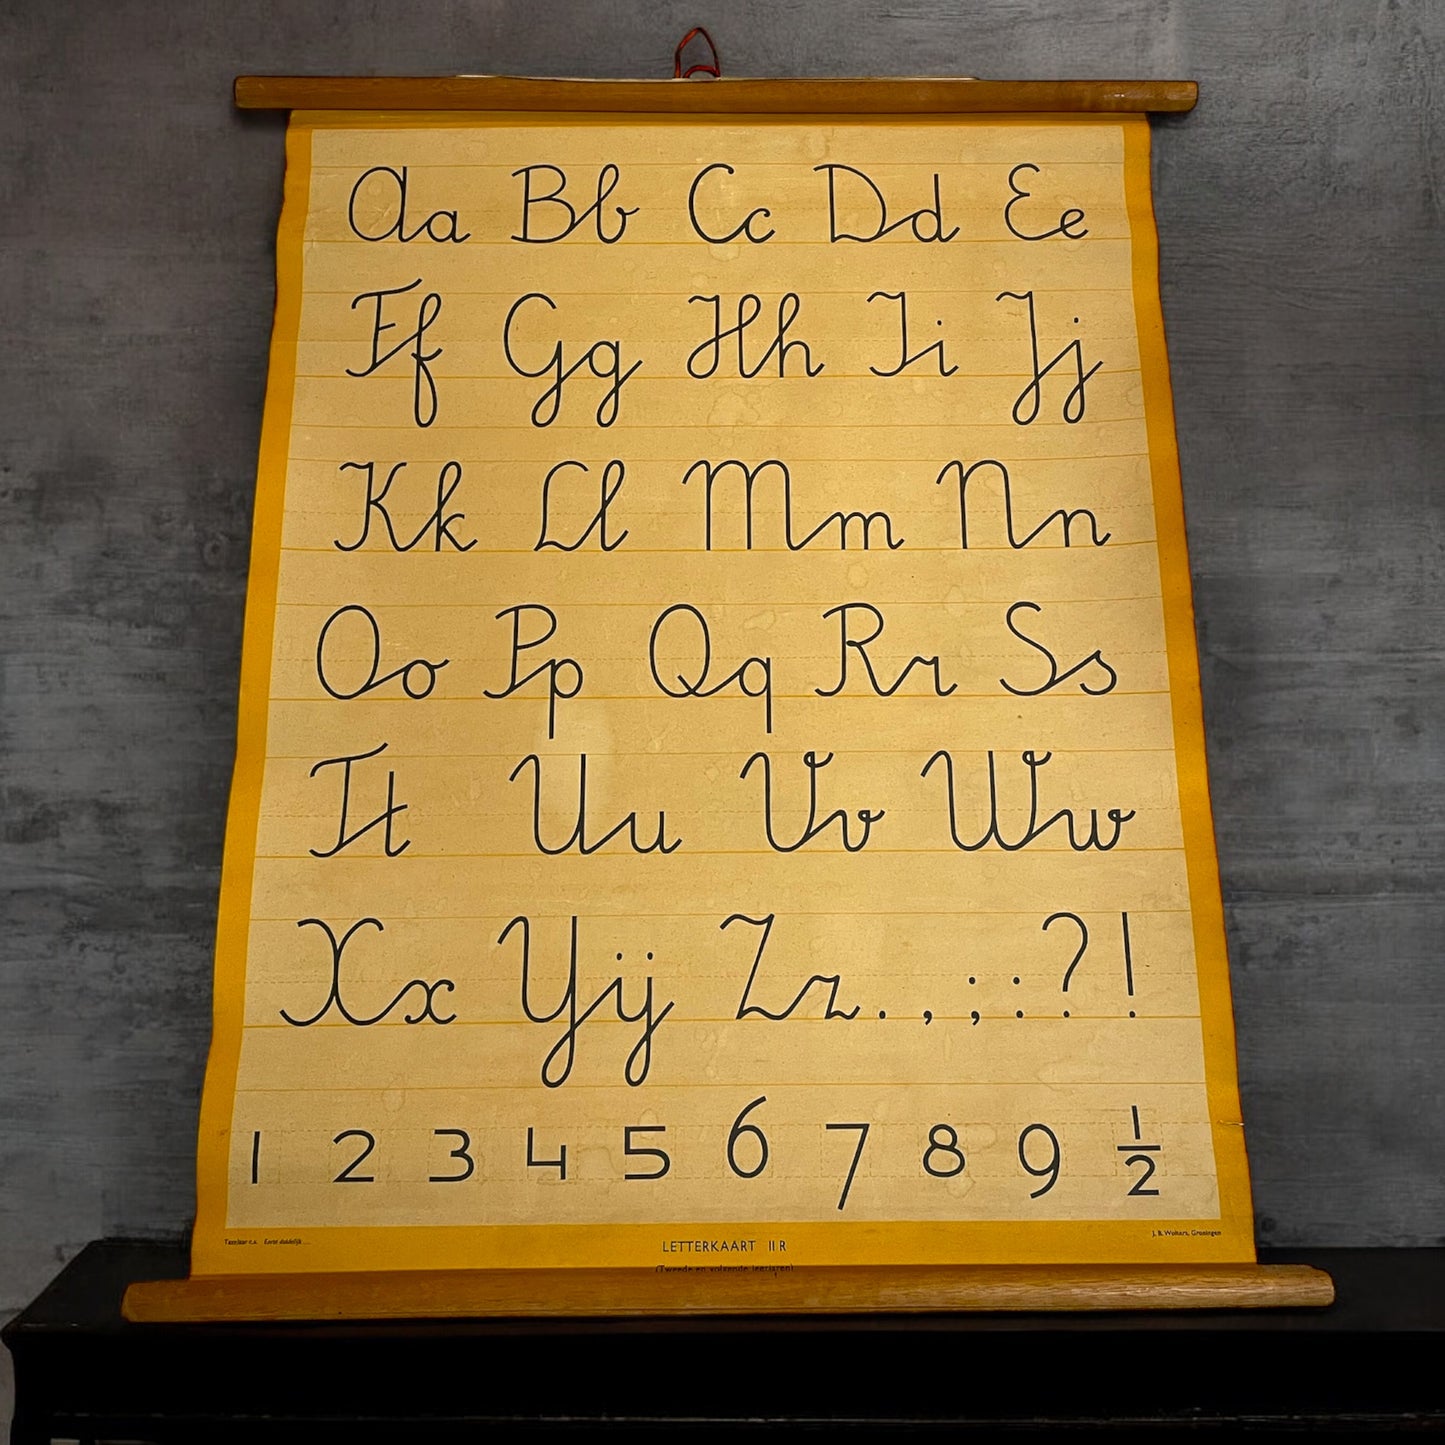 Aa Bb Cc Dd Ee
Ff Gg Hh Ii Jj
Kk Ll Mm Nn
Oo Pp Qq Rr Ss
Tt Uu Vv Ww
Xx Yij Zz . , ; : ? !
1 2 3 4 5 6 7 8 9 1/2
J. B. Wolters, Groningen
LETTERKAART II R
(Tweede en volgende leerjaren)